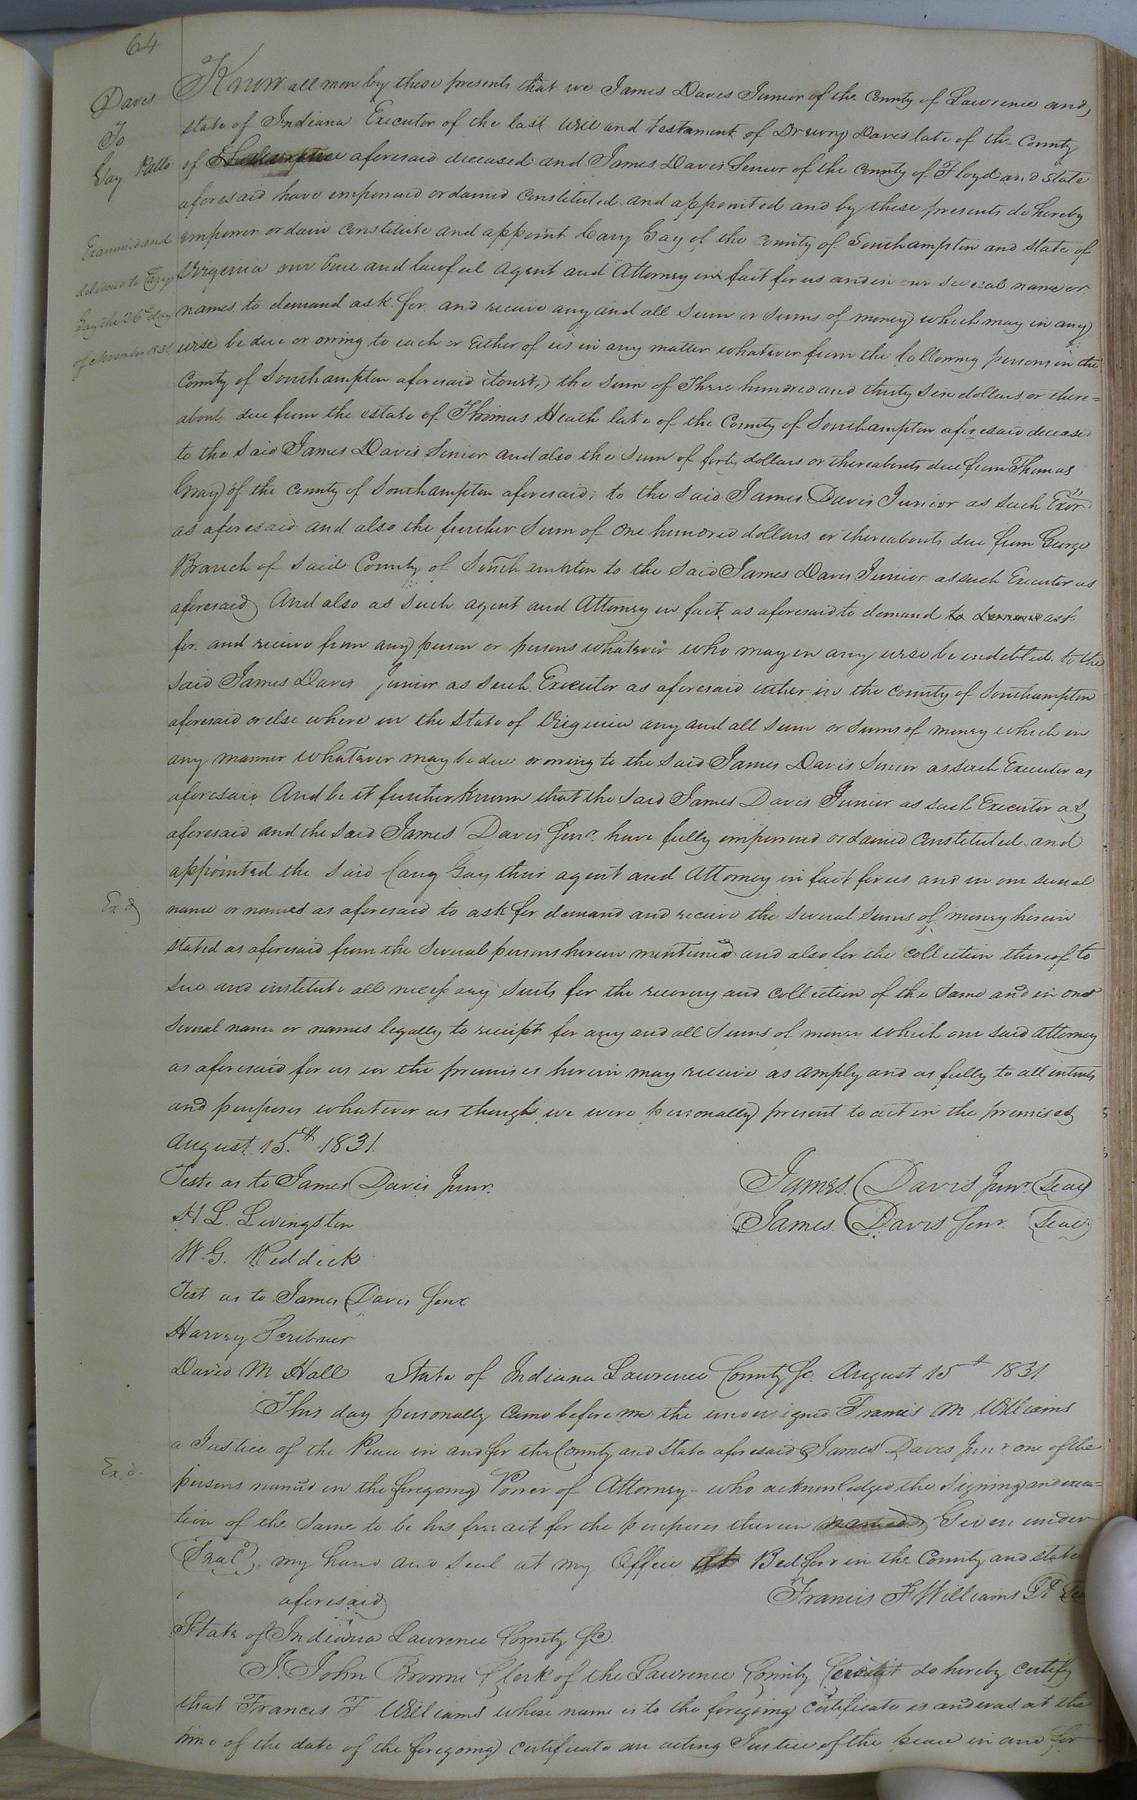 64
Davis
To
Gay Patto
Examined and
delivered to Cary
Gay the 26th day
of November 1831
Know all men by these presents that we James Davis Junior of the County of Lawrence and
state of Indiana Executor of the last Will and testament of Drewry Davis late of the County
of aforesaid deceased and James Davis Senior of the County of Floyd and State
aforesaid have empowered ordained Constituted and appointed and by these presents do hereby
empower ordain constitute and appoint Cary Gay of the County of Southampton and State of
Virginia our true and lawful Agent and Attorney in fact for us and in our several name or
names to demand ask for and receive any and all Sum or Sums of money which may in any
wise be due or owing to each or Either of us in any matter whatever from the following persons in the
County of Southampton aforesaid (towit,) the Sum of Three hundred and thirty Six dollars or there=
about due from the estate of Thomas Heath late of the County of Southampton aforesaid deceased
to the Said James Davis Senior and also the Sum of forty dollars or thereabouts due from Thomas
Gray of the County of Southampton aforesaid, to the Said James Davis Junior as such Exor
as aforesaid and also the further Sum of One hundred dollars or thereabouts due from George
Branch of Said County of Southampton to the Said James Davis Junior as such Executor as
aforesaid And also as Such agent and Attorney in fact as aforesaid to demand to ask
for and receive from any person or persons whatever who may in any wise be indebted to the
Said James Davis Junior as Such Executor as aforesaid either in the County of Southampton
aforesaid or else where in the State of Virginia any and all Sum or Sums of money which in
any manner whatever may be due or owing to the Said James Davis Senior as such Executor as
aforesaid And be it further Known that the Said James Davis Junior as such Executor as
aforesaid and the said James Davis Senr. have fully empowered ordained Constituted and
appointed the Said Cary Gay their agent and Attorney in fact for us and in our several
Exd
name or names as aforesaid to ask for demand and receive the Several Sums of money herein
stated as aforesaid from the Several persons herein mentioned and also for the collection thereof to
Sue and institute all necessary Suits for the recovery and collection of the Same and in our
Several name or names legally to receipt for any and all Sums of money which our said Attorney
as aforesaid for us in the premises herein may receive as amply and as fully to all intents
and purposes whatever as though we were personally present to act in the premises
August 15th 1831.
Teste as to James Davis Junr.
James Davis Junr (Seal)
H L. Livingston
James Davis Senr. (Seal)
W. G. Reddick
Test as to James Davis Senr
Harvey Scribner
David M Hall State of Indiana Lawrence County Sc. August 15th 1831
This day personally came before me the undersigned Francis M Williams
a Justice of the Peace in and for the County and State aforesaid James Davis Junr one of the
Exd.
persons named in the foregoing Power of Attorney who acknowledged the Signing and execu=
tion of the Same to be his free act for the purposes therein named Given under
(Seal). my hand and Seal at my Office at Bedford in the County and state
aforesaid
Francis F Williams
State of Indiana Lawrence County Sc
I John Browne Clerk of the Lawrence County Circuit do hereby certify
that Francis F Williams whose name is to the foregoing certificate is and was at the
time of the date of the foregoing certificate an acting Justice of the peace in and for